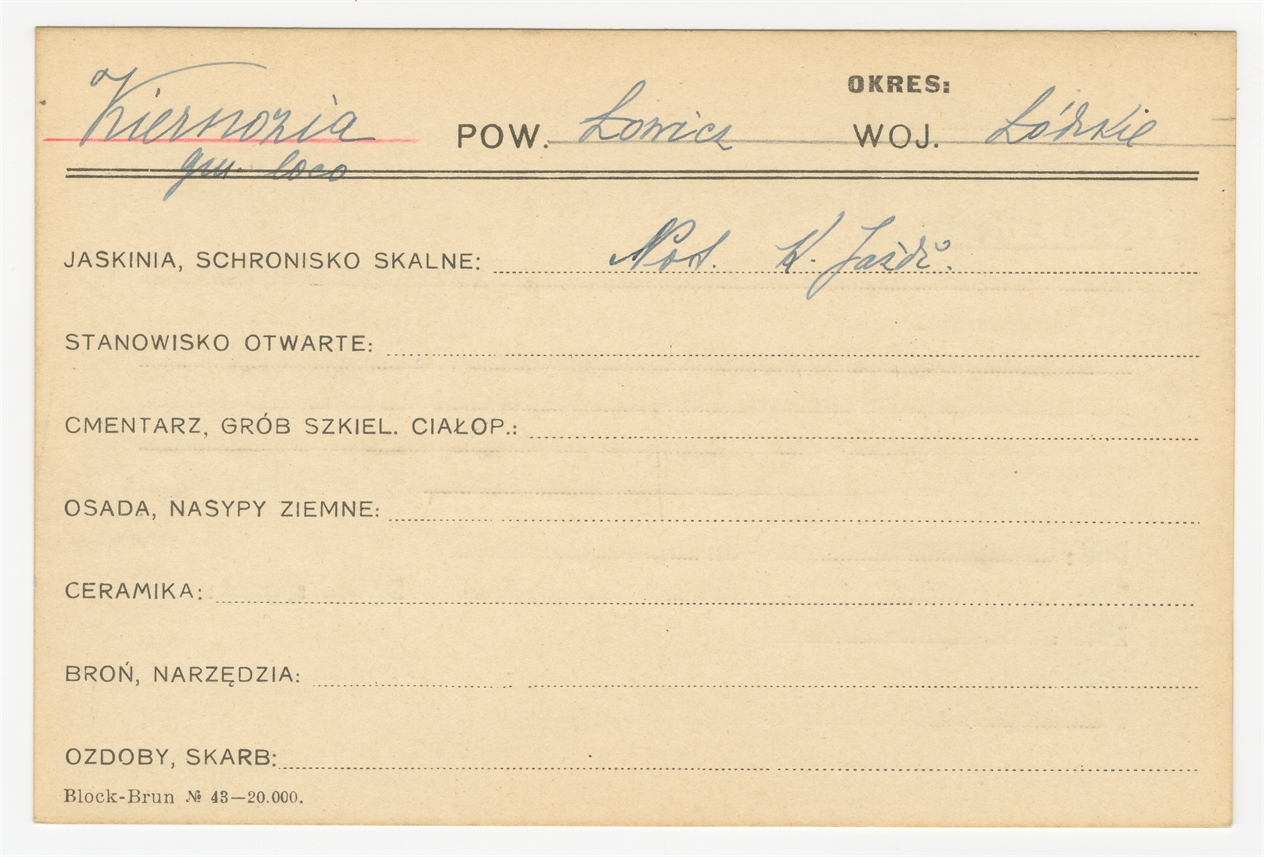 OKRES:
Kiernozia POW. Łowicz WOJ. Łódzkie
gm. loco
JASKINIA, SCHRONISKO SKALNE: Not. K. Jażdż.
STANOWISKO OTWARTE:
CMENTARZ, GRÓB SZKIEL. CIAŁOP.:
OSADA, NASYPY ZIEMNE:
CERAMIKA:
BROŃ, NARZĘDZIA:
OZDOBY, SKARB:
Block-Brun № 43—20.000.